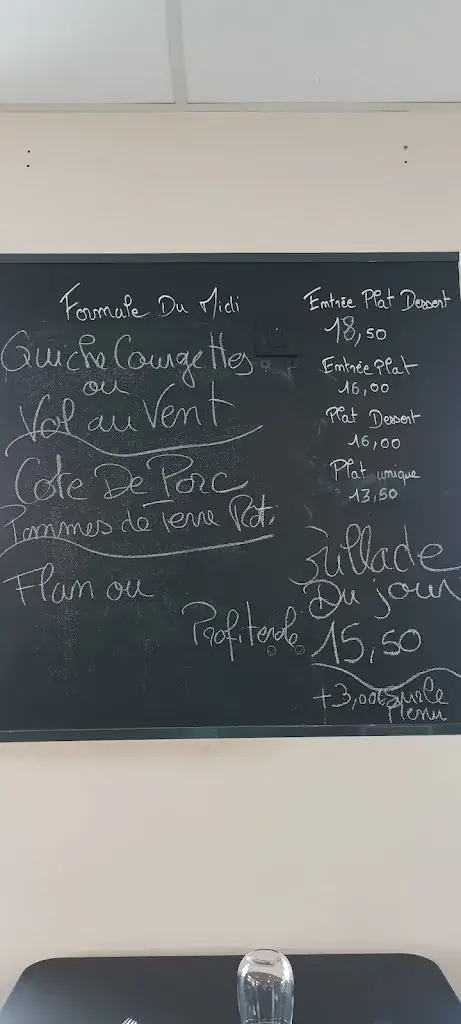 Formule Du Midi
Quiche Courgettes
ou
Vol au Vent
Cote De Porc
Pommes de Terre Rot.
Flan ou
Profiterole
Entrée Plat Dessert
18,50
Entrée Plat
16,00
Plat Dessert
16,00
Plat unique
13,50
Grillade
Du jour
15,50
+3,00€ sur le
Menu